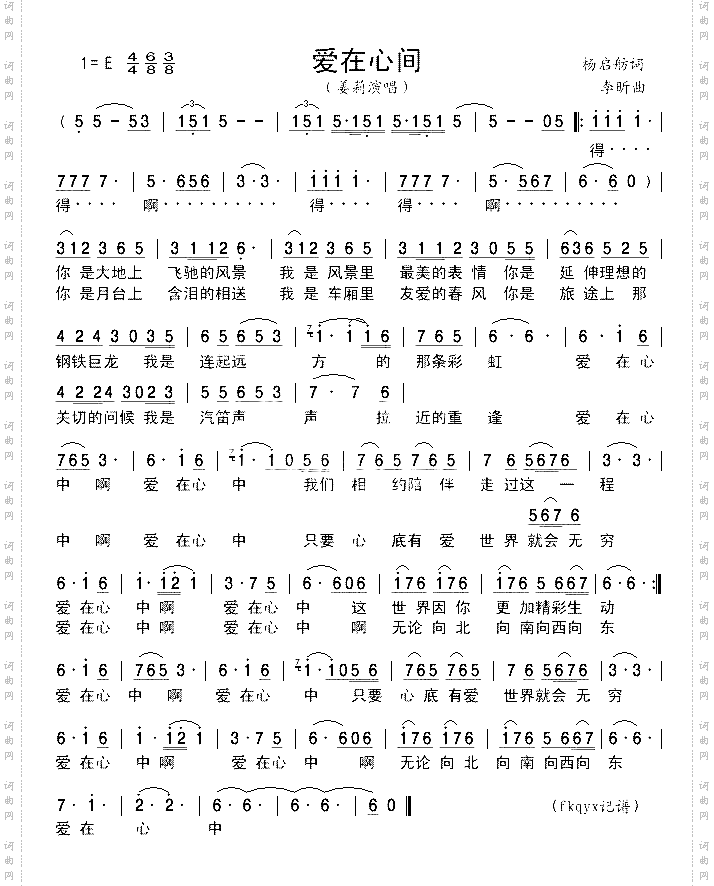 爱在心间
1=E 4/4 6/8 3/8
杨启舫词
(姜莉演唱)
李昕曲
(5 5--53 | 151 5-- | 151 5·151 5·151 5 | 5--05 ‖: iii i· |
得····
777 7· | 5·656 | 3·3· | iii i· | 777 7· | 5·567 | 6·60) |
得···· 啊·········· 得···· 得···· 啊··········
312 365 | 3 112 6· | 312 365 | 3 112 3055 | 636 525 |
你 是大地上 飞驰的风景 我 是 风景里 最美的表 情 你是 延 伸理想的
你 是月台上 含泪的相送 我 是 车厢里 友爱的春 风 你是 旅 途上 那
424 3035 | 65 653 | i· i i6 | 765 | 6·6· | 6·i6 |
钢铁巨龙 我是 连起远 方 的 那条彩 虹 爱 在心
4 224 3023 | 55 653 | 7·7 6 |
关切的问候 我是 汽笛声 声 拉 近的重 逢 爱 在心
765 3· | 6·i6 | i·i 056 | 765 765 | 76 5676 | 3·3· |
中 啊 爱 在心 中 我们 相 约陪 伴 走 过这 一 程
567 6
中 啊 爱 在心 中 只要 心 底有 爱 世界 就会 无 穷
6·i6 | i·i2 i | 3·75 | 6·606 | i76 i76 | i76 5667 | 6·6· :‖
爱 在心 中啊 爱 在心 中 这 世 界因你 更 加精彩生 动
爱 在心 中啊 爱 在心 中 啊 无论 向北 向 南向西向 东
6·i6 | 765 3· | 6·i6 | i·i056 | 765 765 | 765676 | 3·3· |
爱 在心 中 啊 爱 在心 中 只要 心 底 有爱 世界就会 无 穷
6·i6 | i·i2 i | 3·75 | 6·606 | i76 i76 | i76 5667 | 6·6· |
爱 在心 中啊 爱 在心 中 啊 无论 向 北 向 南 向西向 东
7·i· | 2·2· | 6·6· | 6·6· | 60 ‖
(fkqyx记谱)
爱 在 心 中
词曲网